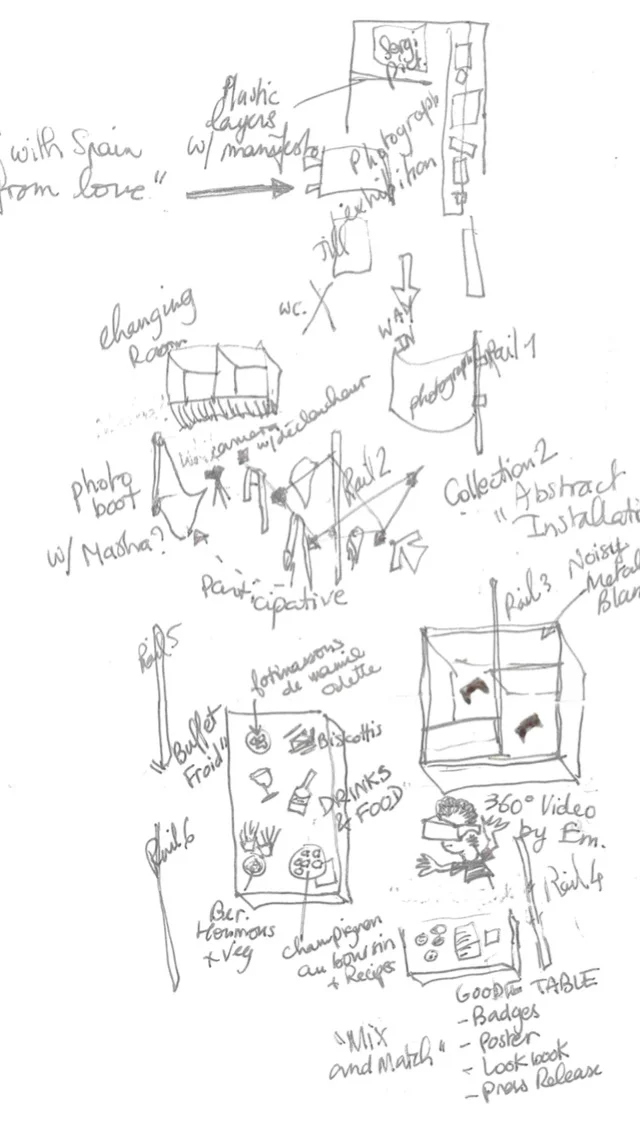 Sergi
Pict.
Plastic
layers
w/ manifesto
with Spain
from love"
Photograph
exhibition
WC.
WAY
IN
changing
Room
photograph
Rail 1
camera
w/ déclencheur
photo
boot
w/ Masha?
Rail 2
Collection 2
"Abstract
Installati
Participative
Rail 3
Noisy
Metal
Blan
Rail 5
"Buffet
Froid"
de mamie
Odette
Biscottis
DRINKS
& FOOD
360° Video
by Em.
Rail 6
Rail 4
Houmous
+ Veg
champignon
au boursin
+ Recipe
GOODIE TABLE
- Badges
- Poster
- Lookbook
- Press Release
"Mix
and Match"